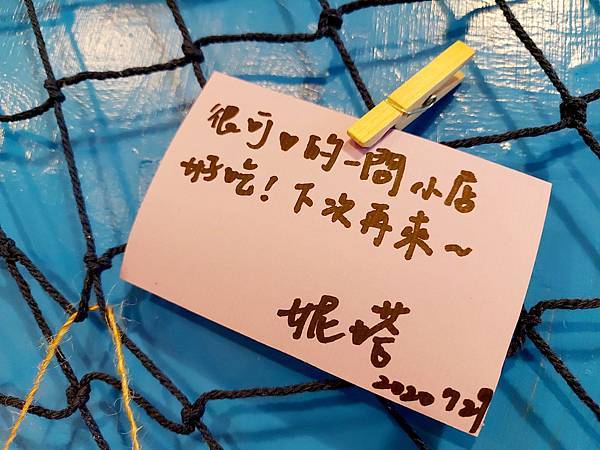 很可♥的一間小店
好吃！下次再來～
妮塔
2020 7.29